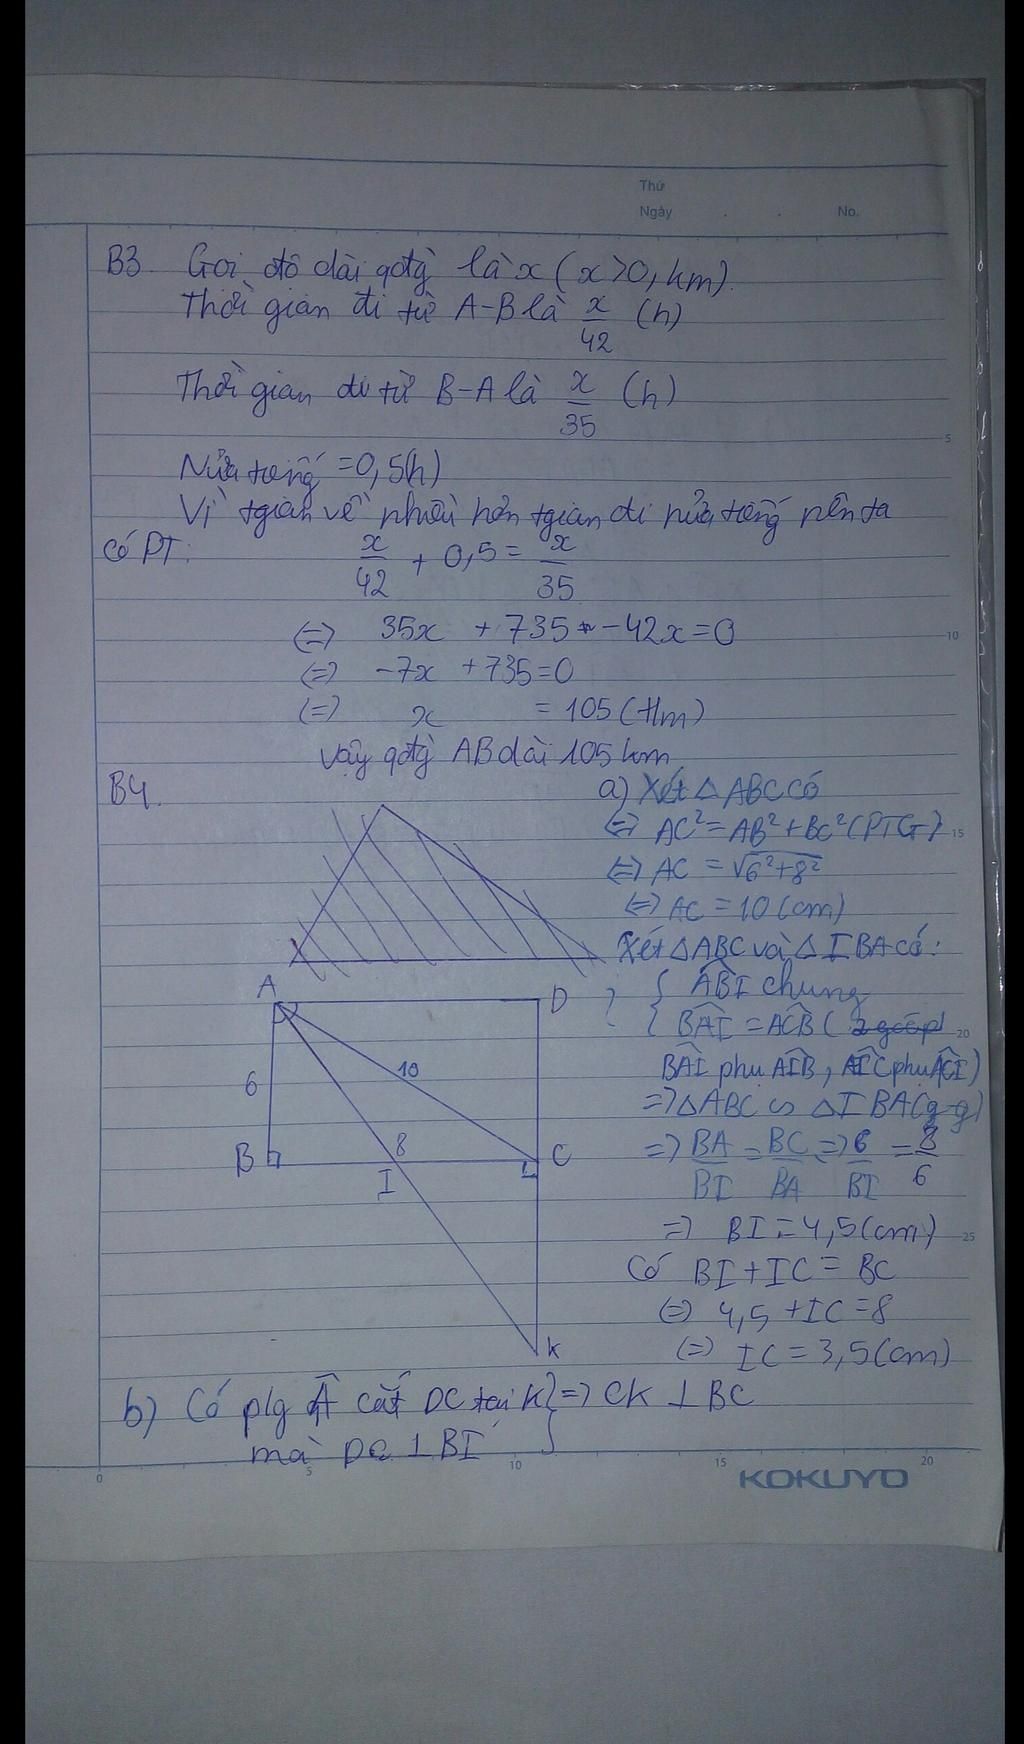 Thứ
Ngày . . No.
B3. Gọi độ dài qđg là x (x>0, km).
Thời gian đi từ A-B là x/42 (h)
Thời gian đi từ B-A là x/35 (h)
5
Nửa tiếng = 0,5(h)
Vì tgian về nhiều hơn tgian đi nửa tiếng nên ta
có PT: x/42 + 0,5 = x/35
(=) 35x + 735 - 42x = 0
10
(=) -7x + 735 = 0
(=) x = 105 (tlm)
Vậy qđg AB dài 105 km
B4.
a) Xét △ ABC có
(=) AC² = AB² + BC² (PTG)
15
(=) AC = √6²+8²
(=) AC = 10 (cm)
Xét △ABC và △IBA có:
? { ABI chung
{ BAI = ACB (
20
BAI phụ AIB, AIC phụ ACI)
=> △ABC ∽ △IBA (g-g)
=> BA/BI = BC/BA => 6/BI = 8/6
=> BI = 4,5 (cm)
25
Có BI + IC = BC
(=) 4,5 + IC = 8
(=) IC = 3,5 (cm)
A
D
6
10
B
8
C
I
K
b) Có p/g Â cắt DC tại K } => CK ⊥ BC
mà DC ⊥ BI
0 5 10 15 20
KOKUYO